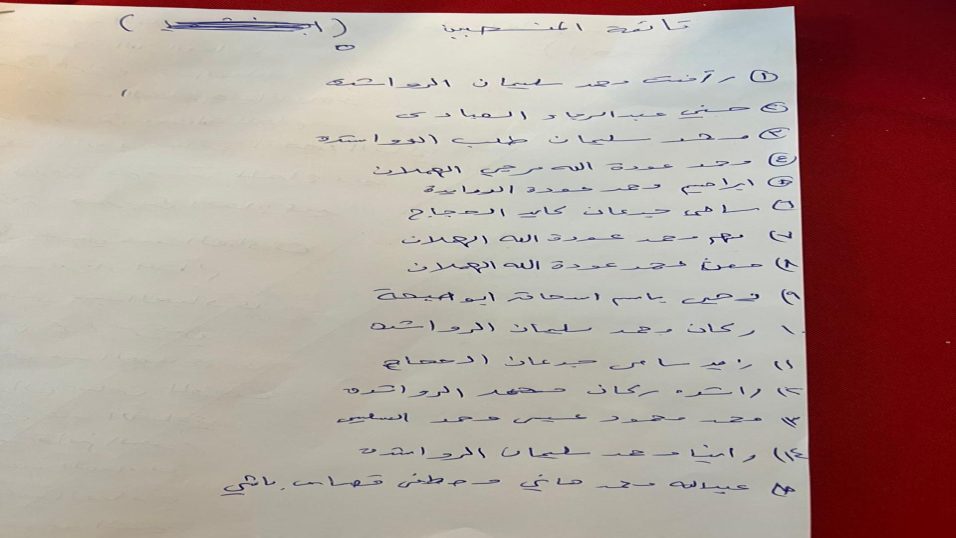 قائمة المنتسبين ( )
١) رأفت محمد سليمان الرواشده
٢) حسني عبدالرجاد العبادي
٣) محمد سليمان طلب الرواشده
٤) محمد عودة الله مرجي الهملان
٥) ابراهيم محمد عودة الروايدة
٦) سامي جدعان كايد الحجاج
٧) محمد عودة الله الهملان
٨) معن محمد عودة الله الهملان
٩) باسم اسحاق ابوصيحة
١٠ ركان محمد سليمان الرواشده
١١) زيد سامي جدعان الحجاج
١٢) راشد ركان محمد الرواشده
١٣ محمد محمود عيسى محمد السليم
١٤) رانيا محمد سليمان الرواشده
١٥ عبدالله محمد هاني مصطفى قصاب باشي